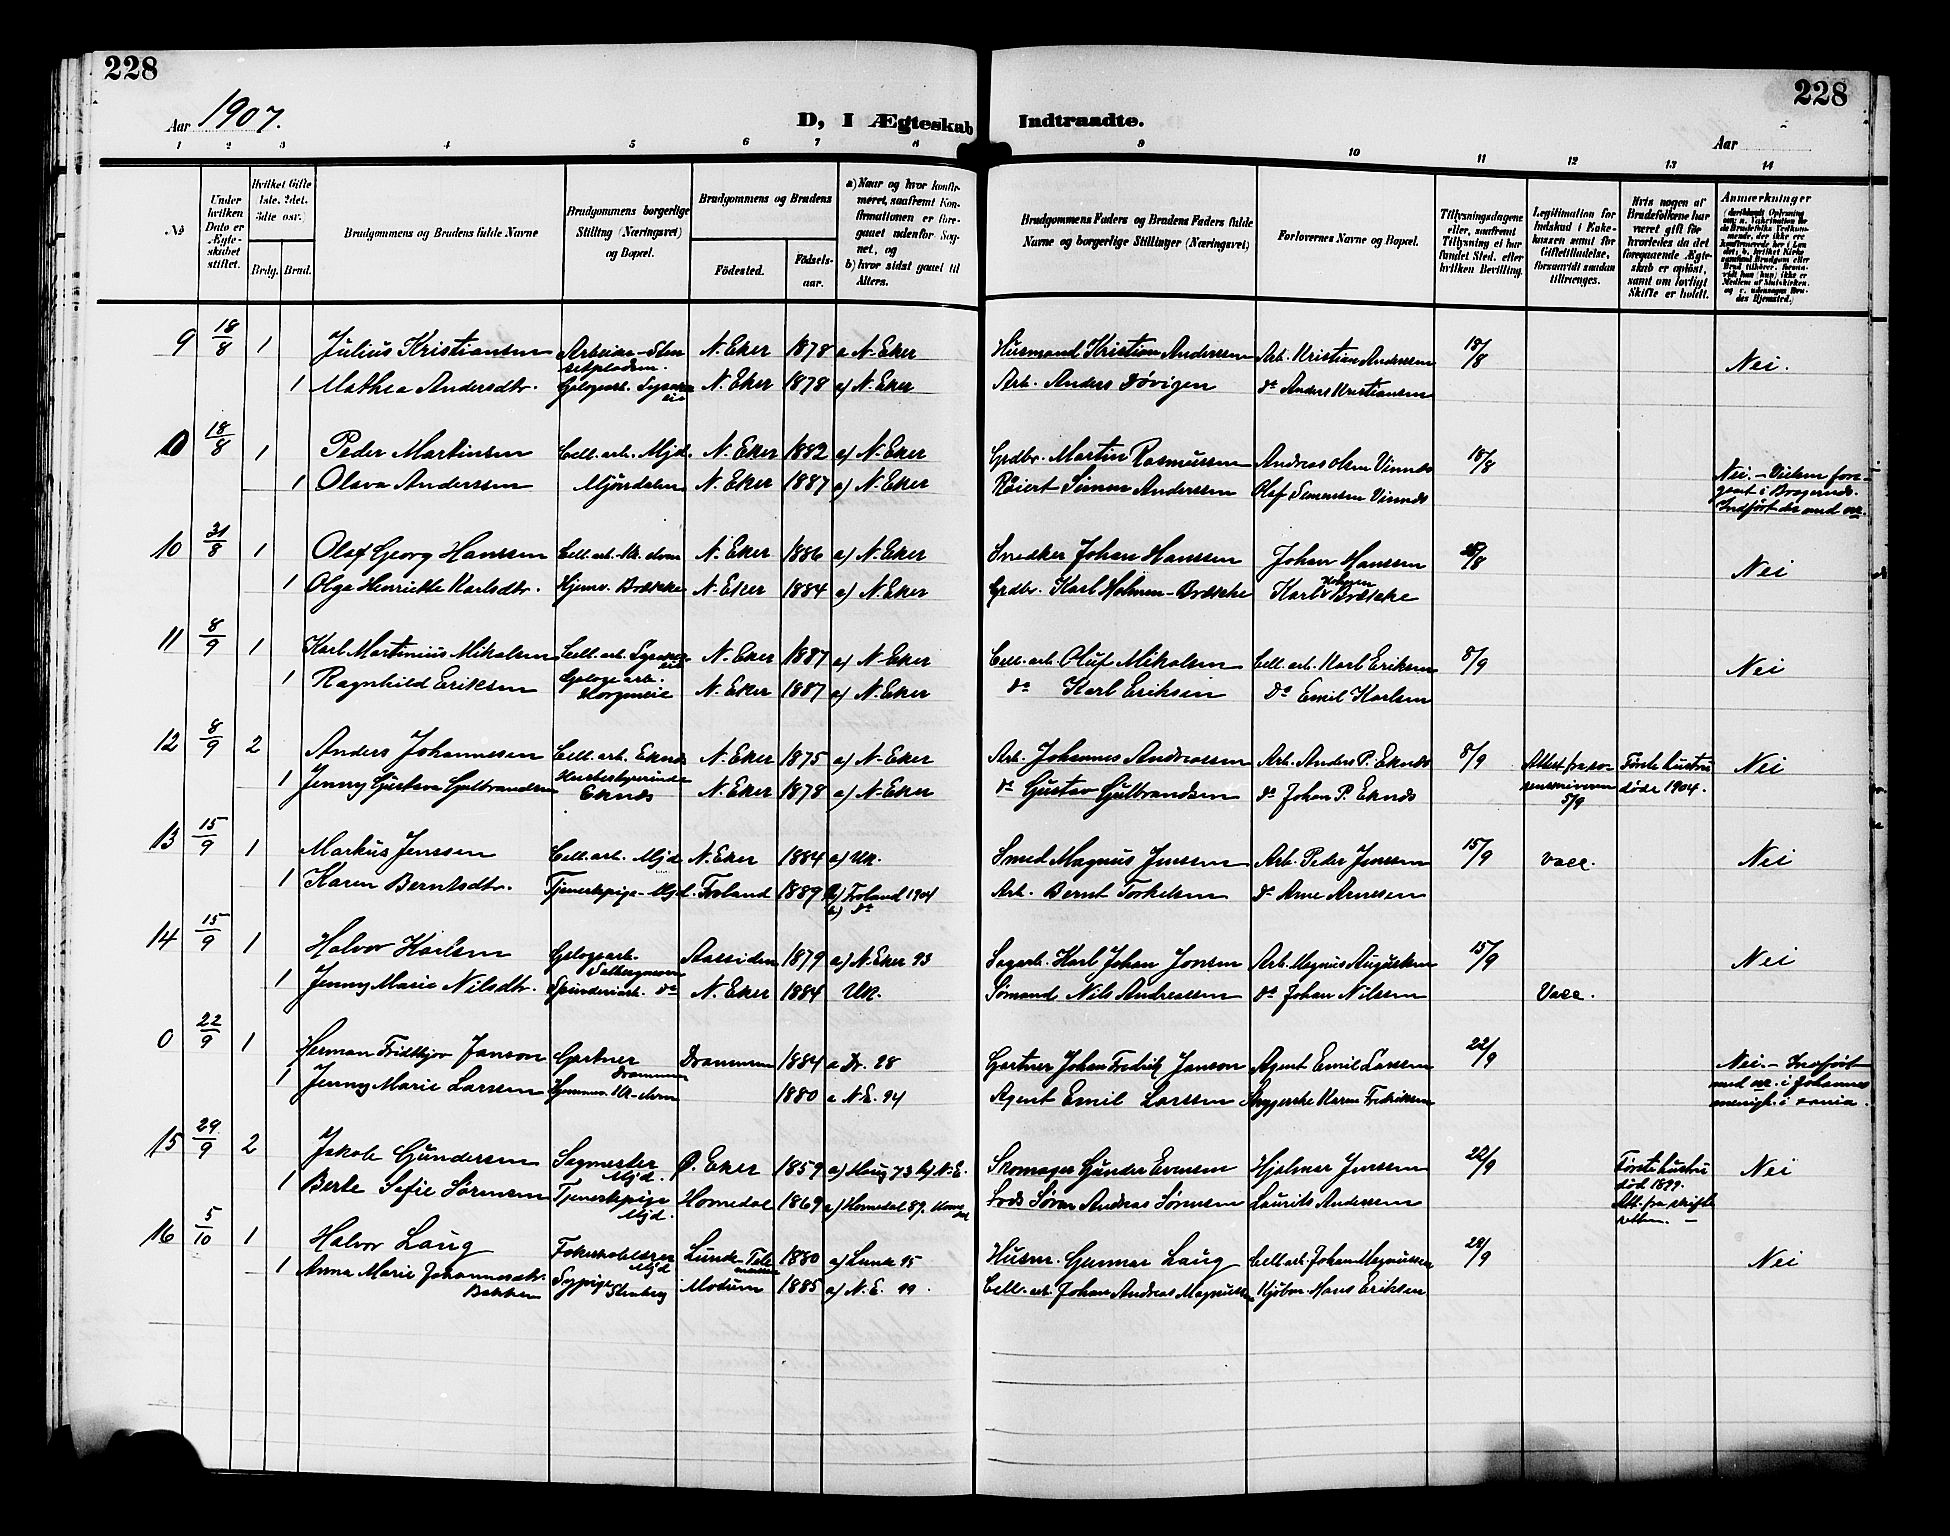 228
228
Aar 1907.
D, I Ægteskab Indtraadte.
Aar
1 2 3 4 5 6 7 8 9 10 11 12 13 14
No
Under hvilken Dato er Ægteskabet stiftet.
Hvilket Gifte 1ste, 2det, 3die osv.
Brdg. Brud.
Brudgommens og Brudens fulde Navne
Brudgommens borgerlige Stilling (Næringsvei) og Bopæl.
Brudgommens og Brudens
Födested.
Födsels-aar.
a) Naar og hvor konfirmeret, saafremt Konfirmationen er foregaaet udenfor Sognet, og
b) hvor sidst gaaet til Alters.
Brudgommens Faders og Brudens Faders fulde Navne og borgerlige Stillinger (Næringsvei)
Forlovernes Navne og Bopæl.
Tillysningsdagene eller, saafremt Tillysning ei har fundet Sted, efter hvilken Bevilling.
Legitimation for Indskud i Enkekassen samt for Giftetilladelse, forsaavidt saadan tiltrænges.
Hvis nogen af Brudefolkene har været gift før hvorledes da det foregaaende Ægteskab er oplöst, samt om lovligt Skifte er holdt.
Anmærkninger
9 18/8 1 Julius Kristiansen Arbeider N. Eker 1878 a N. Eker Husmand Kristian Anderssen Arb. Kristian Anderssen 18/8 Nei.
1 Mathea Andersdtr. N. Eker 1878 a) N. Eker Arb. Anders Dövigen do Anders Kristiansen
0 18/8 1 Peder Martinsen Cell. arb. Mjd. N. Eker 1882 a) N. Eker Grdbr. Martin Rasmussen Andreas Olsen Vinnes 18/8 Nei. - Vielsen fore-
1 Olava Anderssen Mjöndalen N. Eker 1887 a) N. Eker Simon Anderssen Olaf Simensen Vinnes gaaet i Bragernes. Indfört der med nr.
10 31/8 1 Olaf Georg Hanssen Cell. arb. Kr. elven N. Eker 1886 a) N. Eker Snedker Johan Hanssen Johan Hanssen /8 Nei
1 Olga Henriette Karlsdtr. Hjemv. Brække N. Eker 1884 a) N. Eker Grdbr. Karl Holmen-Brække Karl Holmen Brække
11 8/9 1 Karl Martinius Mikalsen Cell. arb. N. Eker 1887 a) N. Eker Cell. arb. Oluf Mikalsen Cell. arb. Karl Eriksen 8/9 Nei
1 Ragnhild Eriksen N. Eker 1887 a) N. Eker do Karl Eriksen Do Emil Karlsen
12 8/9 2 Anders Johannesen Cell. arb. Eknes N. Eker 1875 a) N. Eker Arb. Johannes Andreassen Arb. Anders P. Eknes 8/9 Attest fra so- Förste hustru Nei
1 Jenny Gustava Gulbrandsen Eknes N. Eker 1878 a) N. Eker do Gustav Gulbrandsen do Johan P. Eknes renskriveren 5/9 döde 1904.
13 15/9 1 Markus Jenssen Cell. arb. Mjd. N. Eker 1884 a) Uk. Smed Magnus Jenssen Arb. Peder Jenssen 15/9 vacc. Nei
1 Karen Berntsdtr. Tjenestepige - Mjd. Froland 1889 a) Froland 1904 b) do Arb. Bernt Torkelsen do Arne Arnesen
14 15/9 1 Halvor Karlsen Aassiden 1879 a) N. Eker 93 Sagarb. Karl Johan Jonsen Arb. Magnus Augustsen 15/9 Nei
1 Jenny Marie Nilsdtr. Spinderiarb. do N. Eker 1884 Uk. Sömand Nils Andreassen do Johan Nilsen Vacc.
0 22/9 1 Herman Fridthjov Janson Gartner Drammen Drammen 1884 a Dr. 98 Gartner Johan Fredrik Janson Agent Emil Larssen 22/9 Nei. - Indfört
1 Jenny Marie Larssen Hjemmev. Kr. elven 1880 a N. E. 94 Agent Emil Larssen Karen Fredriksen med nr. i Johannes menigh. i
15 29/9 2 Jakob Gundersen Sagmester Mjd. Ö. Eker 1859 a) Haug 73 b) N. E. Skomager Gunder Evensen Hjalmar Jenssen 22/9 Förste hustru död 1899. Nei
1 Berte Sofie Sörensen Tjenestepige Mjd. Homedal 1869 a) Homedal 87. Lods Sören Andreas Sörensen Laurits Anderssen Att. fra skifte-retten. -
16 5/10 1 Halvor Laug Mjd Lunde - Telemarken 1880 a) Lunde 95 Husm. Gunnar Laug Cell. arb. Johan Magnussen 29/9 Nei
1 Anna Marie Johannesdtr. Bakken Sypige Stenberg Modum 1885 a) N. E. 99. Cell. arb. Johan Andreas Magnussen Kjöbm. Hans Eriksen